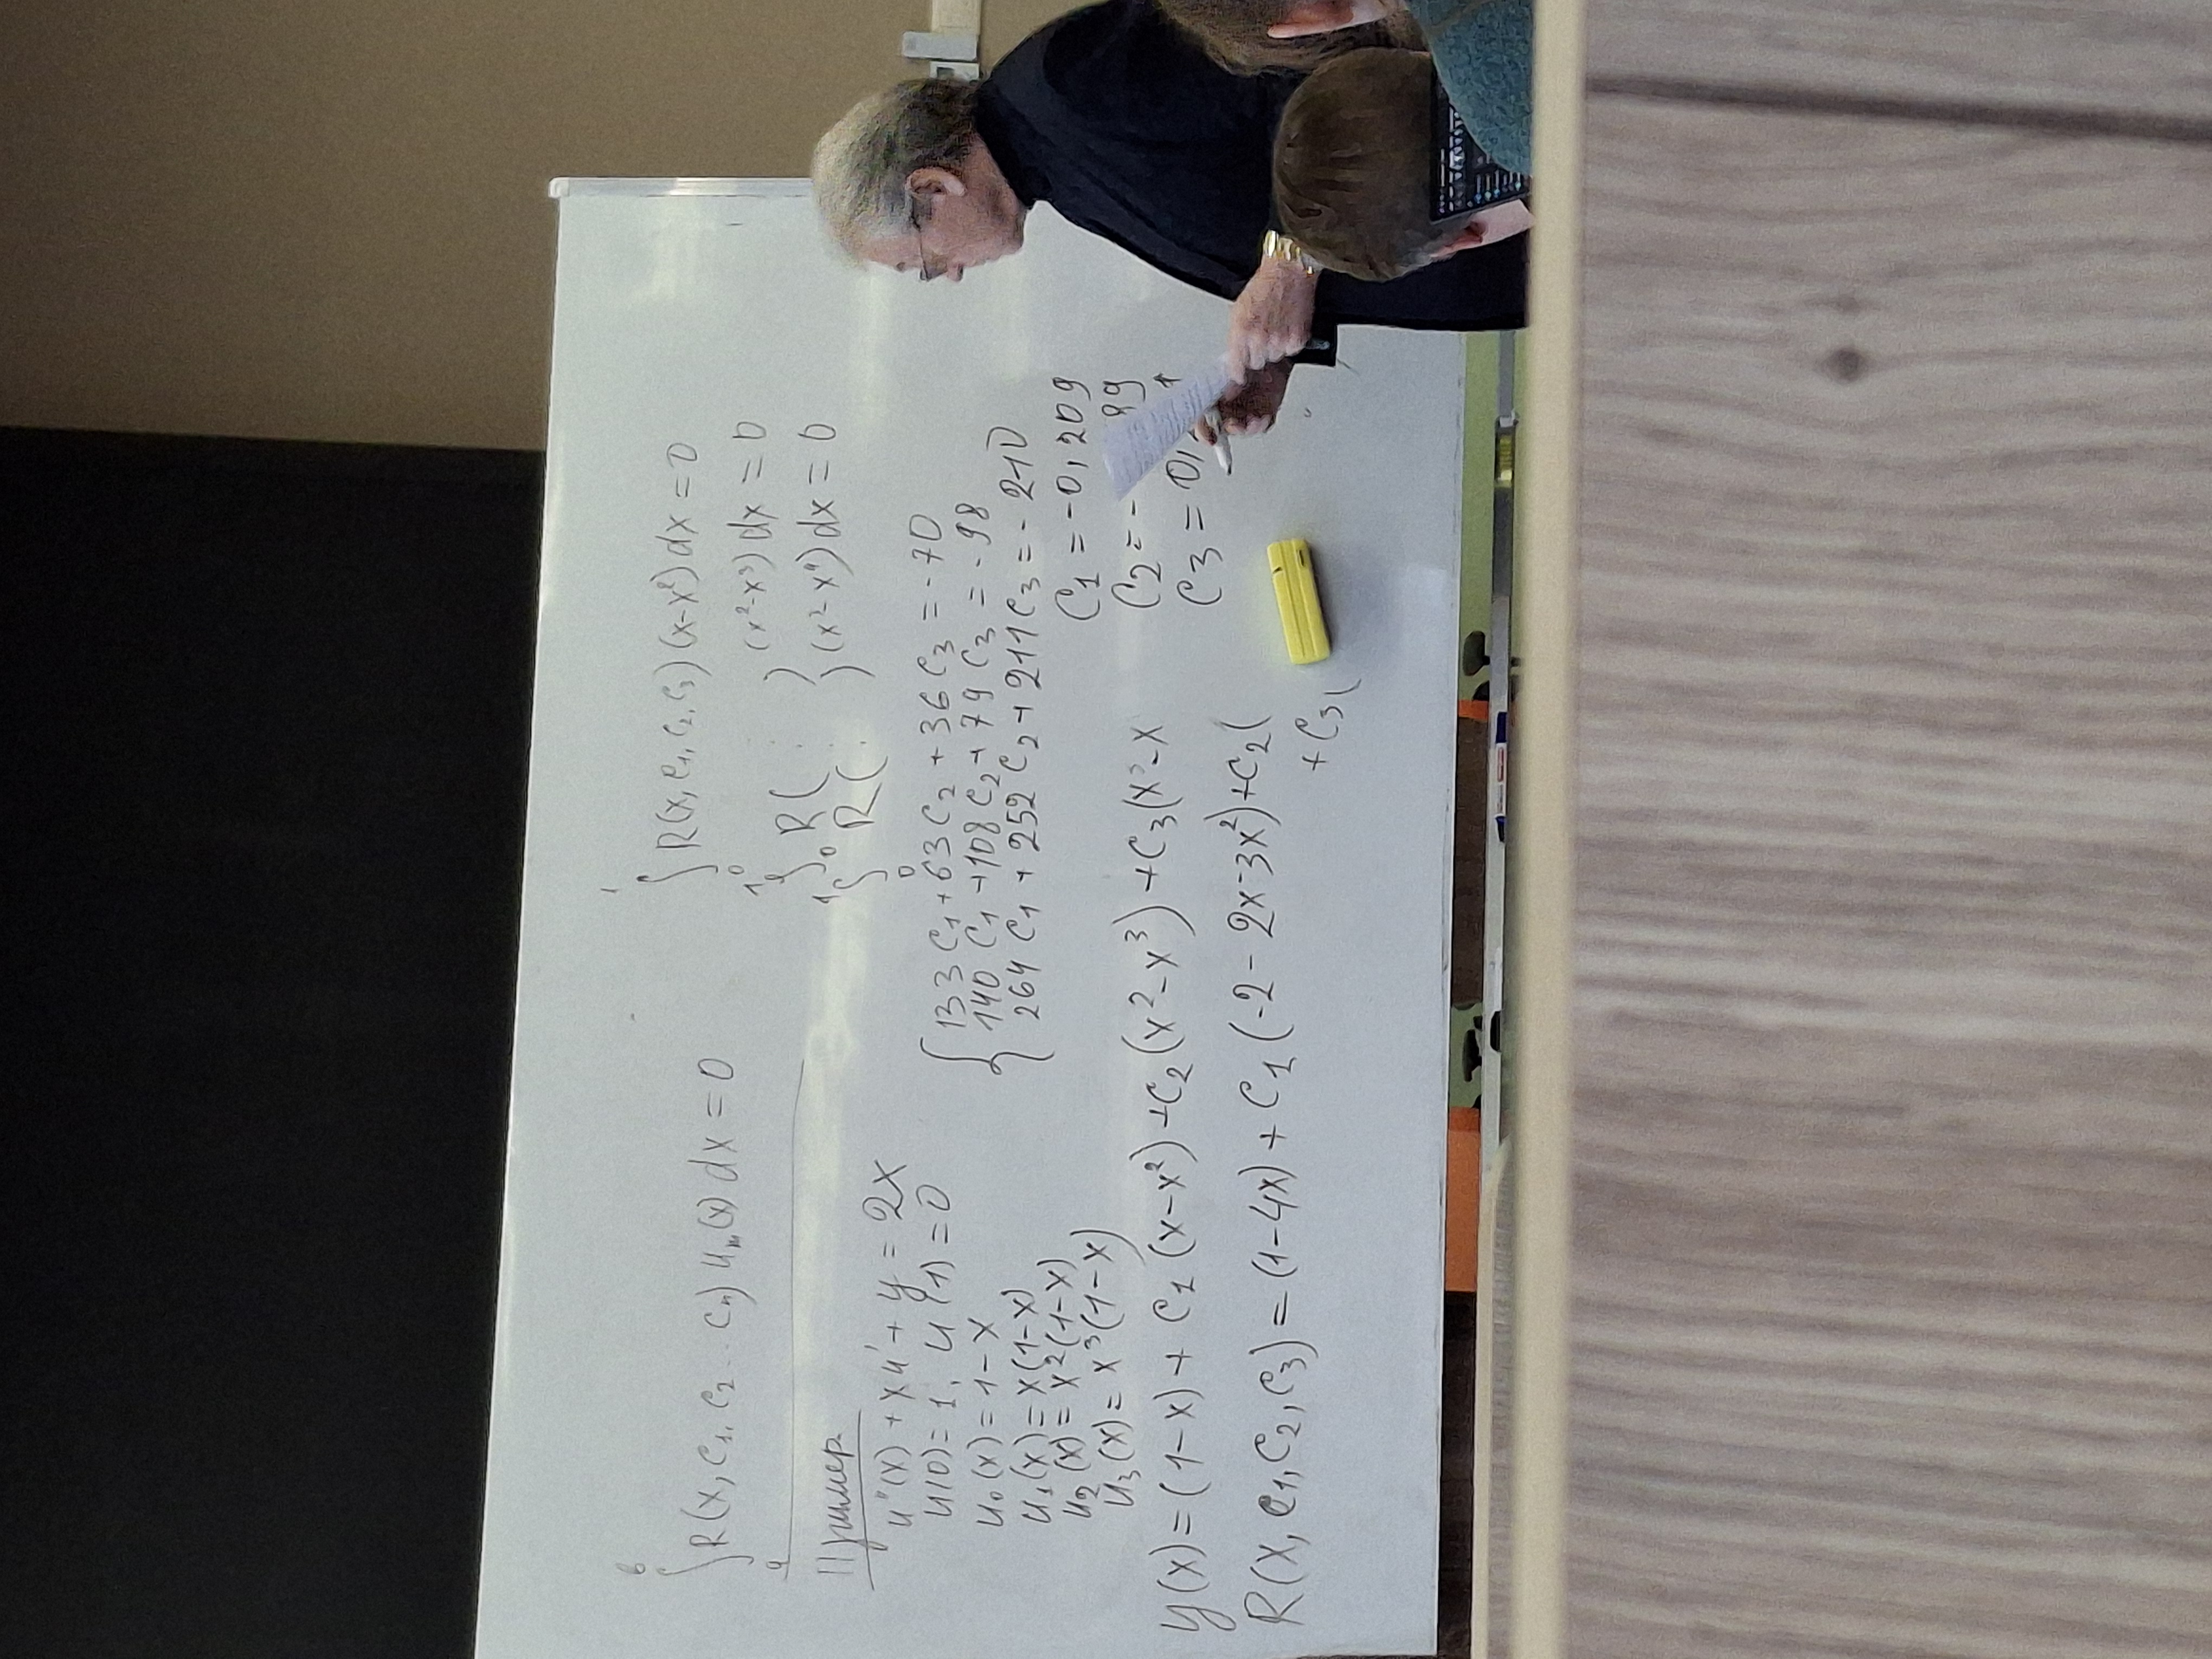 ∫ₐᵇ R(x, c₁, c₂ .. cₙ) uₘ(x) dx = 0
Пример.
u''(x) + xu' + y = 2x
u(0) = 1, u(1) = 0
u₀(x) = 1-x
u₁(x) = x(1-x)
u₂(x) = x²(1-x)
u₃(x) = x³(1-x)
y(x) = (1-x) + c₁(x-x²) + c₂(x²-x³) + c₃(x³-x
R(x, c₁, c₂, c₃) = (1-4x) + c₁(-2-2x-3x²) + c₂(
+ c₃(
∫₀¹ R(x, c₁, c₂, c₃)(x-x²)dx = 0
∫₀¹ R( : )(x²-x³)dx = 0
∫₀¹ R( : )(x³-x⁴)dx = 0
133c₁ + 63c₂ + 36c₃ = -70
140c₁ + 108c₂ + 79c₃ = -98
264c₁ + 252c₂ + 211c₃ = -210
c₁ = -0,209
c₂ = - 89
c₃ = 0,